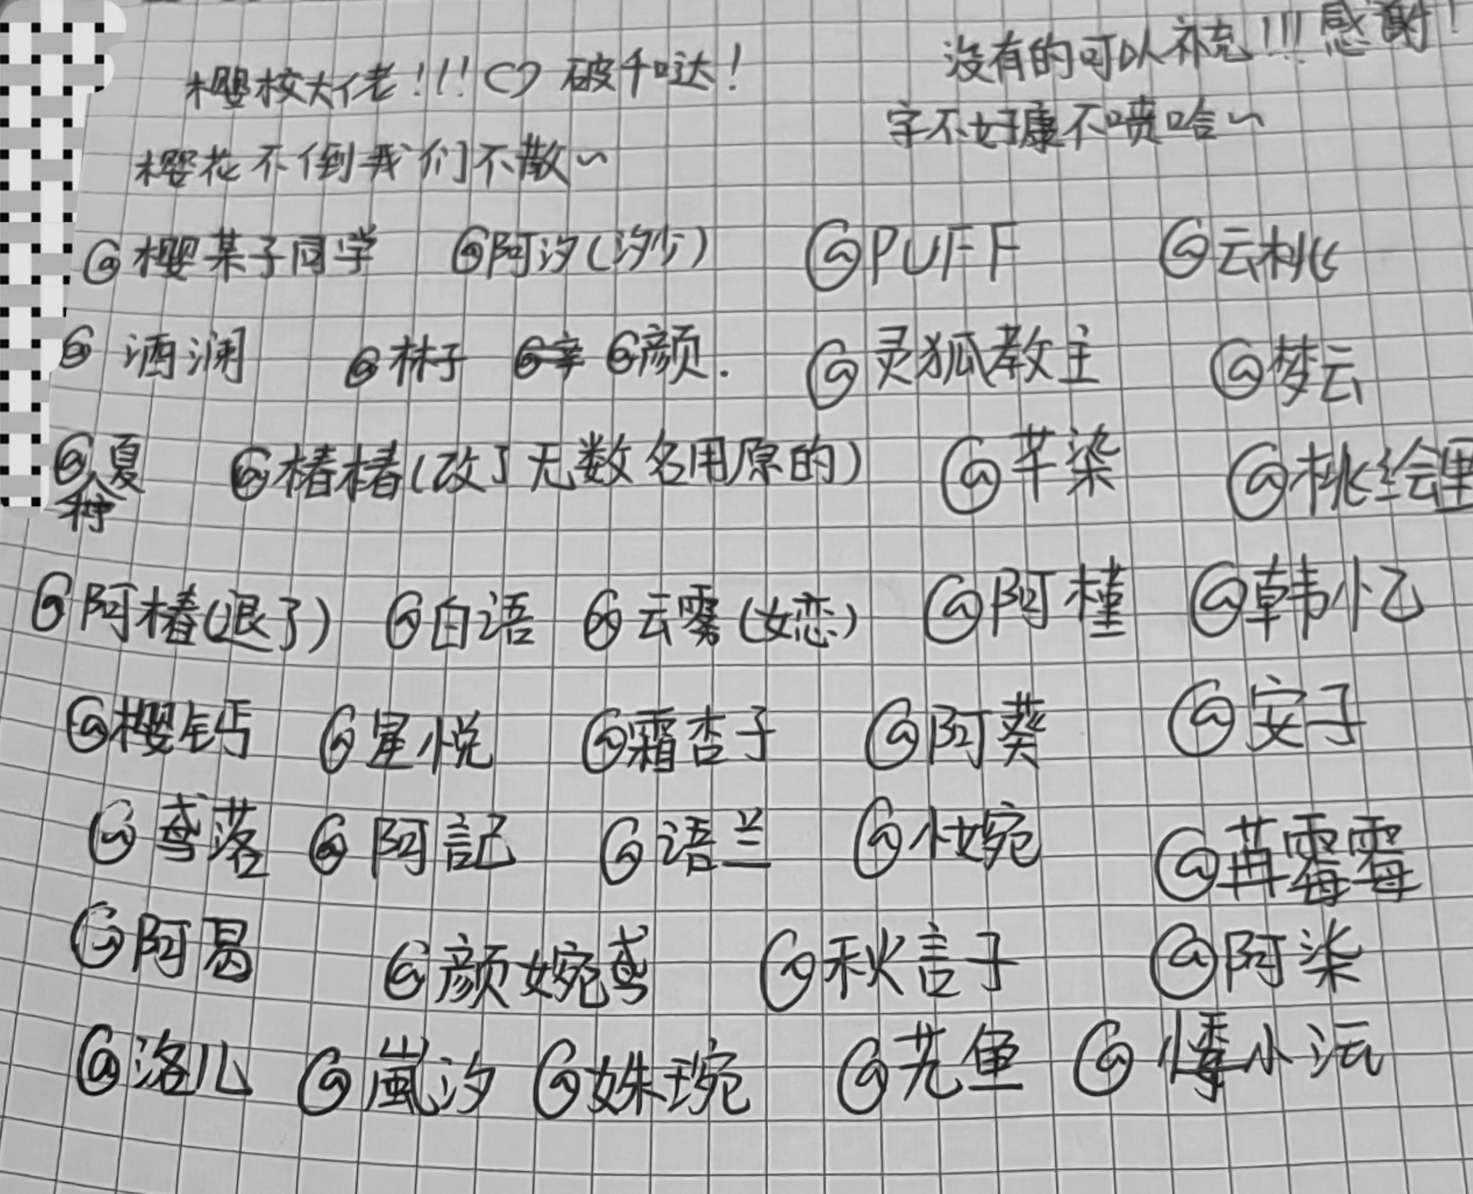 樱校大佬!!!♡破千哒!
没有的可以补充!!!感谢!
字不好康不喷哈~
樱花不倒我们不散~
@樱某子同学 @阿汐(汐少) @PUFF @云桃
@酒澜 @林子 @颜. @灵狐教主 @梦云
@夏柠 @椿椿(改了无数名用原的) @芊染 @桃绘里
@阿椿(退了) @白语 @云雾(女恋) @阿槿 @韩忆
@樱钙 @星悦 @霜杏子 @阿葵 @安子
@鸢落 @阿記 @语兰 @忺婉 @苒霉霉
@阿曷 @颜婉鸢 @秋言子 @阿柒
@洛儿 @嵐汐 @姝琬 @艽鱼 @小沅